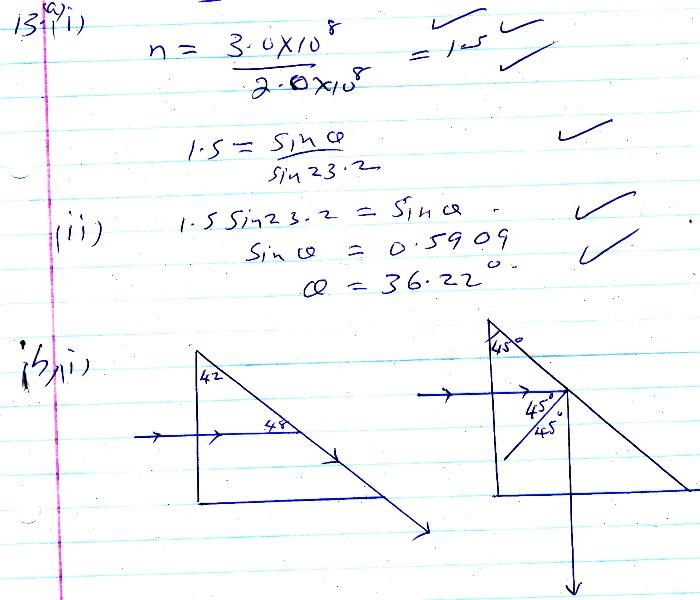 13.(a)(i)
n = 3.0×10⁸ / 2.0×10⁸ = 1.5
1.5 = Sin θ / Sin 23.2
(ii) 1.5 Sin 23.2 = Sin θ.
Sin θ = 0.5909
θ = 36.22°.
(b)(i)
42
48
45°
45°
45°